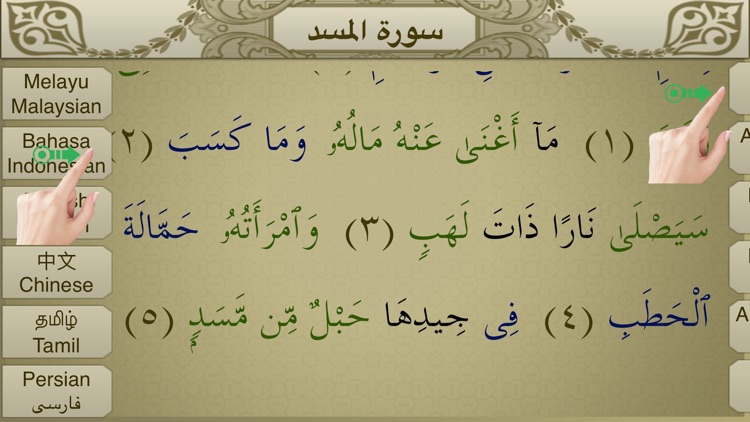 سورة المسد
Melayu
Malaysian
Bahasa
Indonesian
中文
Chinese
தமிழ்
Tamil
Persian
فارسی
(١) مَآ أَغْنَىٰ عَنْهُ مَالُهُۥ وَمَا كَسَبَ (٢)
سَيَصْلَىٰ نَارًا ذَاتَ لَهَبٍ (٣) وَٱمْرَأَتُهُۥ حَمَّالَةَ
ٱلْحَطَبِ (٤) فِى جِيدِهَا حَبْلٌ مِّن مَّسَدٍۭ (٥)
A
A